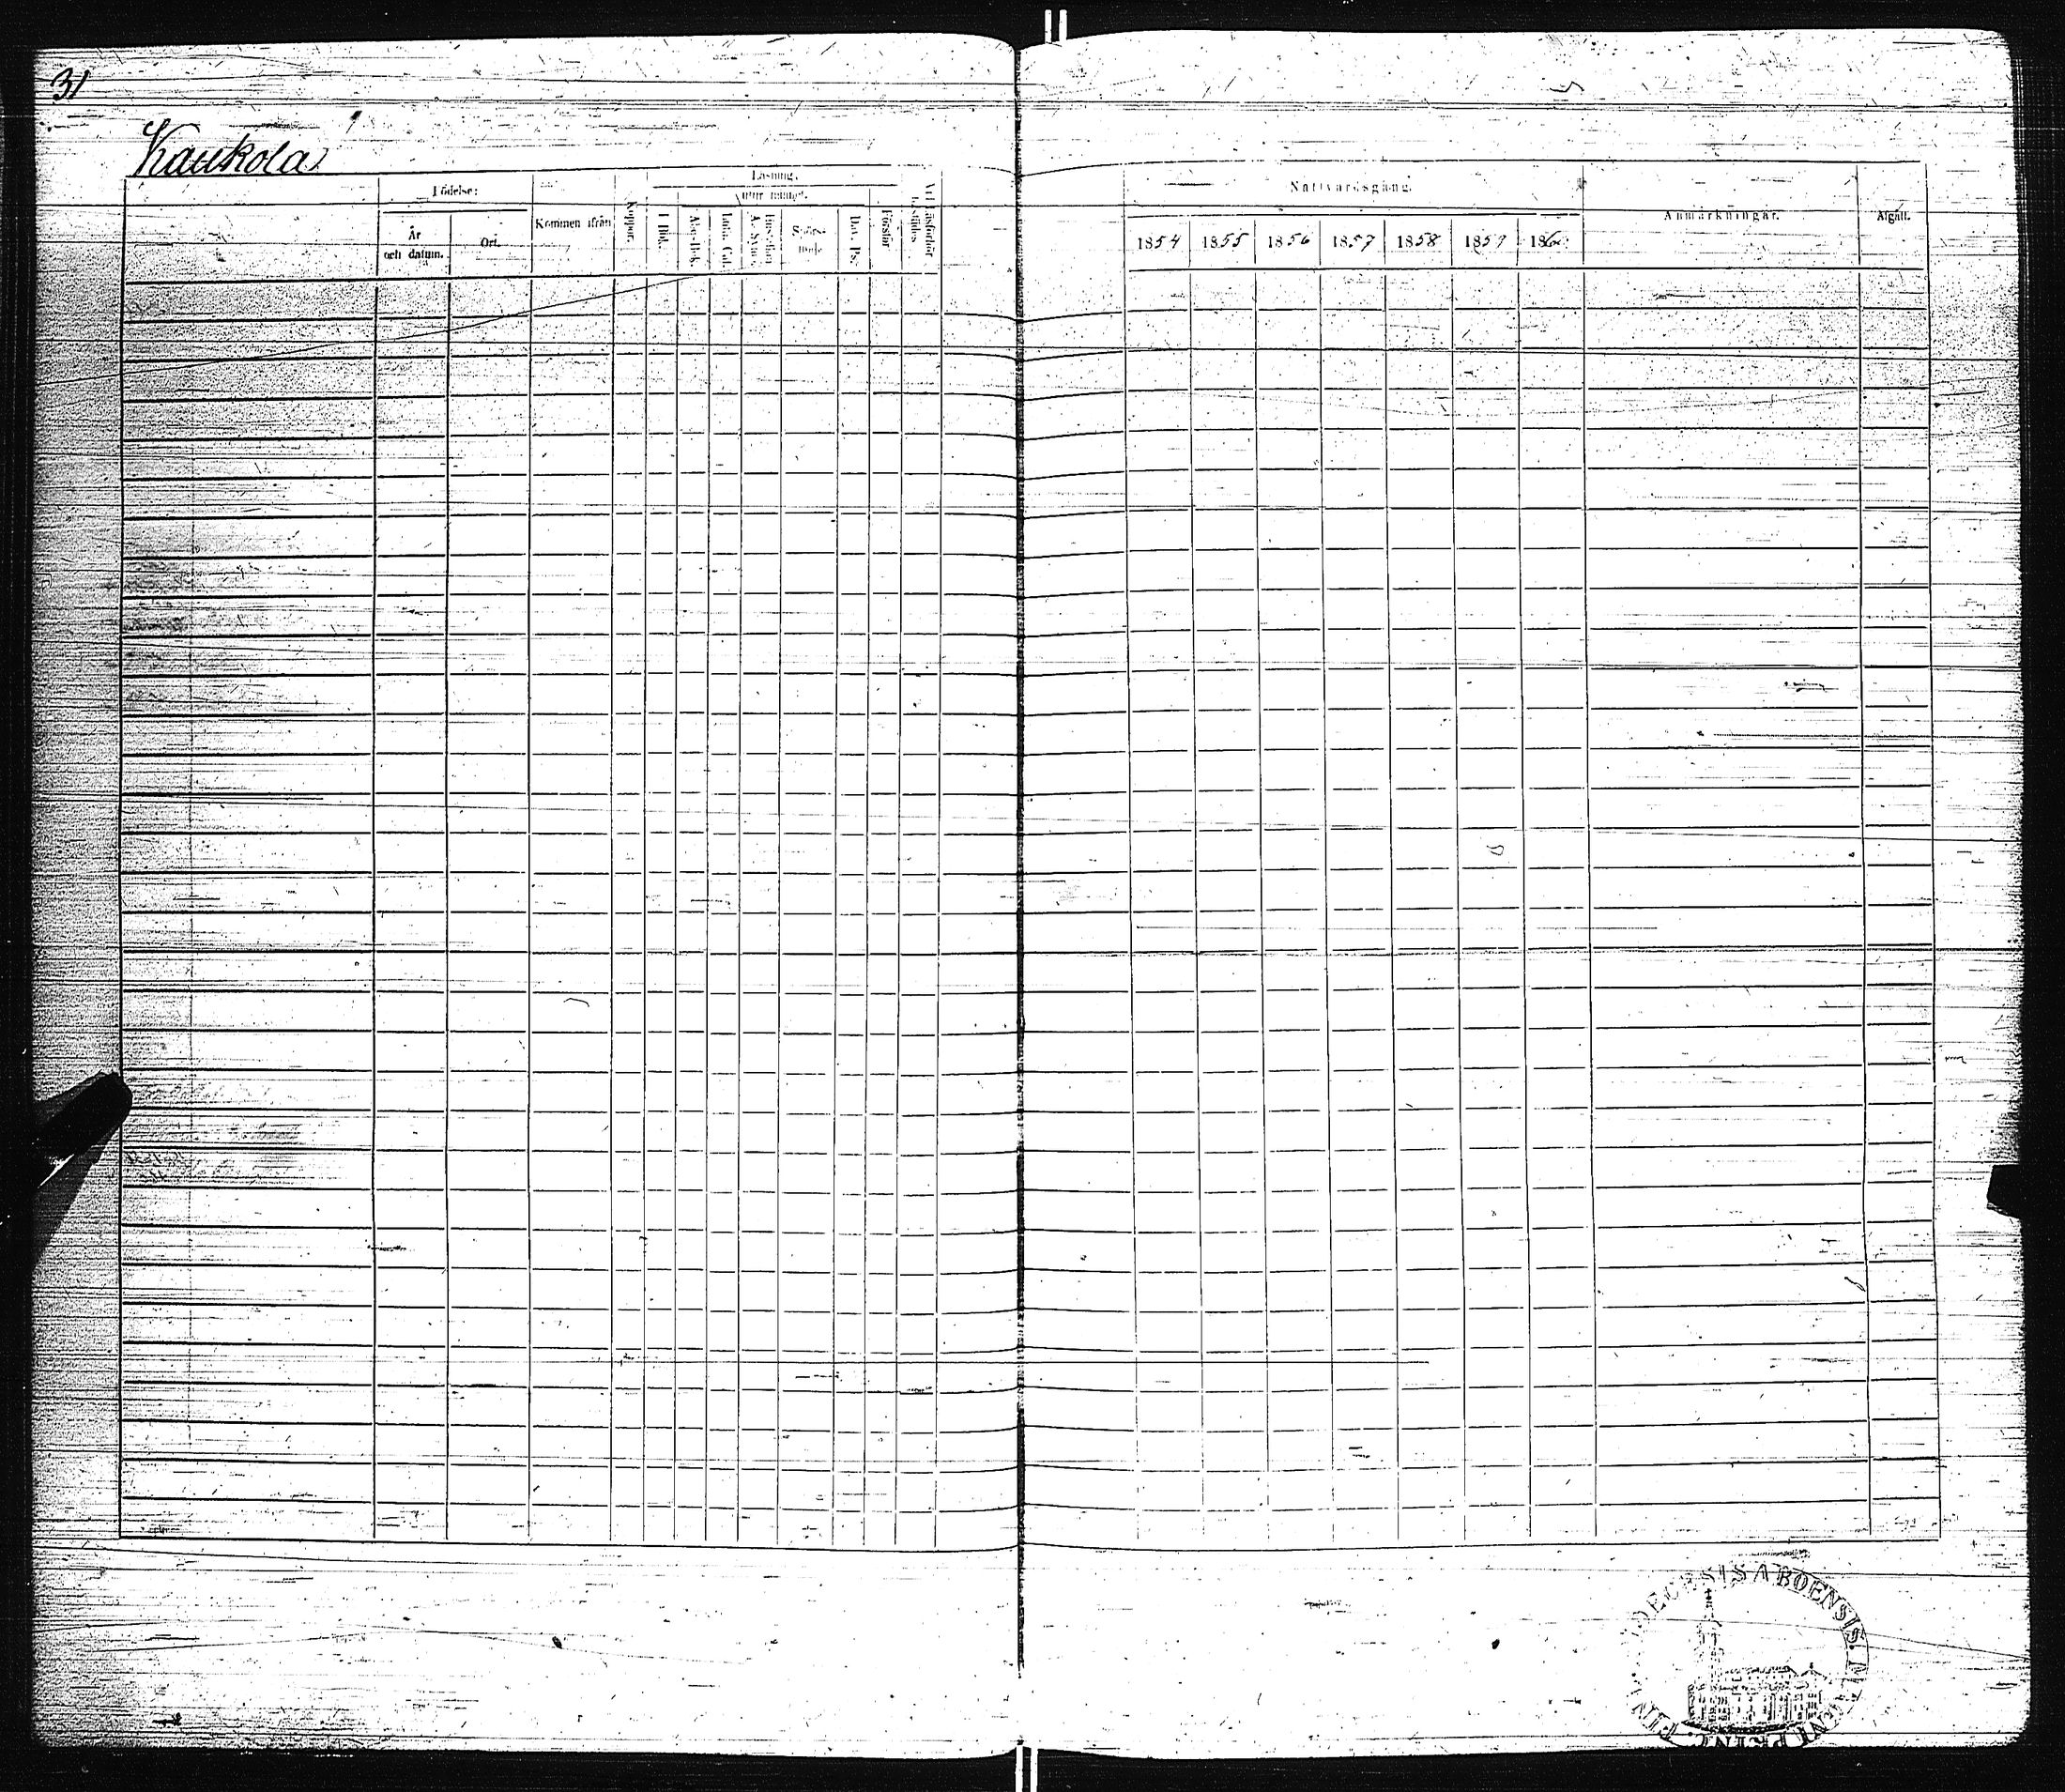 31
Kaukola
Födelse:
År
och datum.
Ort.
Kommen ifrån
Koppor.
Läsning.
utur minnet.
I Bok.
Abc-Bok.
Luth. Cat.
Hustaflan
A. Symb.
Spörs-
mål.
Dav. Ps.
Förstår
Vid Läsförhör
tillstädes
Nattvardsgång.
1854 1855 1856 1857 1858 1859 1860
Anmärkningar.
Afgått.
DIOECESIS ABOENSIS